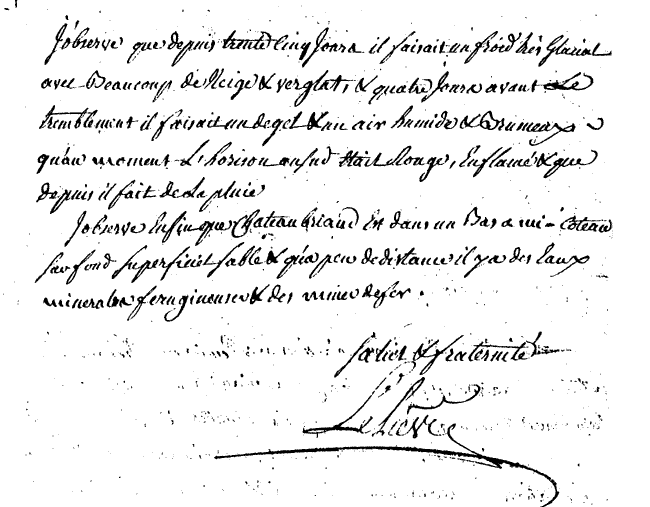 J'observe que depuis trente cinq Jours il faisait un froid très Glacial
avec Beaucoup de Neige & verglat, & quatre Jours avant Le
tremblement il faisait un degel & un air humide & Brumeux
qu'au moment L'horison au sud était Rouge, Enflamé & que
depuis il fait de La pluie
J'observe Enfin que Chateaubriand Est dans un Bas a mi-Coteau
fond superficiel sable & qu'a peu de distance il y a des Eaux
minerales ferugineuses & des mines de fer.
salut & fraternité
Le Lièvre